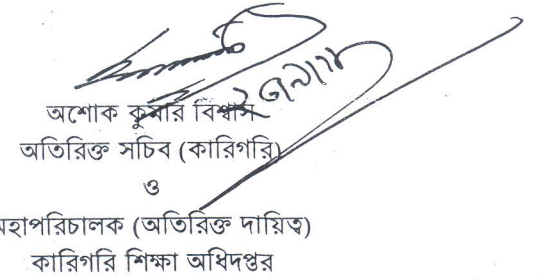 অশোক কুমার বিশ্বাস
অতিরিক্ত সচিব (কারিগরি)
ও
মহাপরিচালক (অতিরিক্ত দায়িত্ব)
কারিগরি শিক্ষা অধিদপ্তর